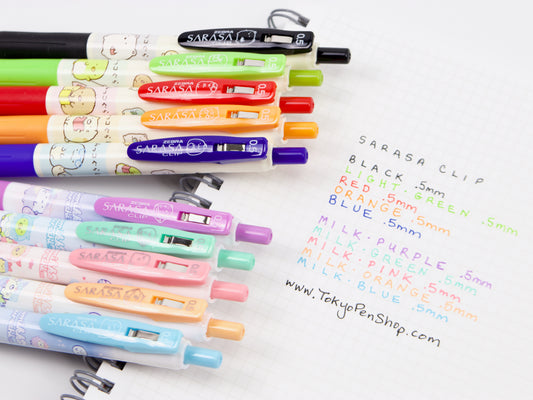 ZEBRA
SARASA
CLIP
0.5
ZEBRA
SARASA
CLIP
0.5
ZEBRA
SARASA
CLIP
0.5
ZEBRA
SARASA
CLIP
0.5
ZEBRA
SARASA
CLIP
0.5
SARASA CLIP
SARASA CLIP
SARASA CLIP
SARASA
SARASA CLIP
SARASA CLIP
BLACK .5mm
LIGHT:GREEN .5mm
RED .5mm
ORANGE .5mm
BLUE .5mm
MILK:PURPLE .5mm
MILK:GREEN .5mm
MILK:PINK .5mm
MILK:ORANGE .5mm
MILK:BLUE .5mm
www.TokyoPenShop.com